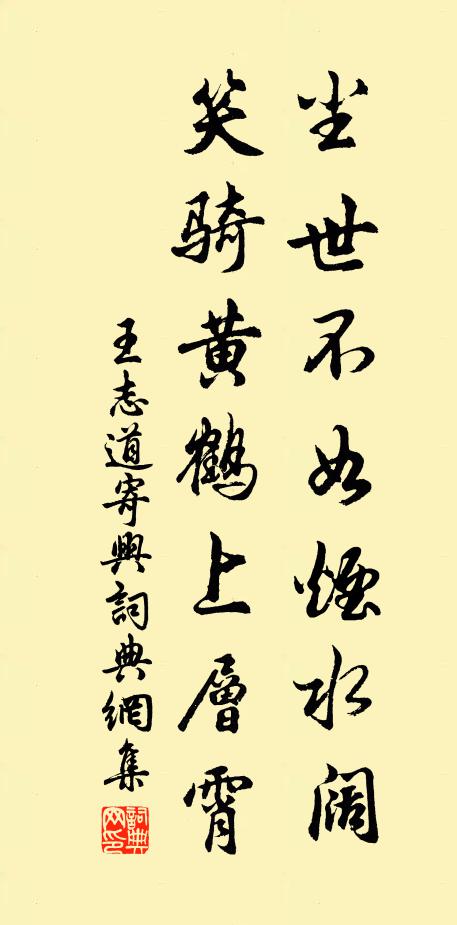 尘世不如煙水阔
笑骑黄鹤上層霄
王志道寄興詞典網集
詞典网印